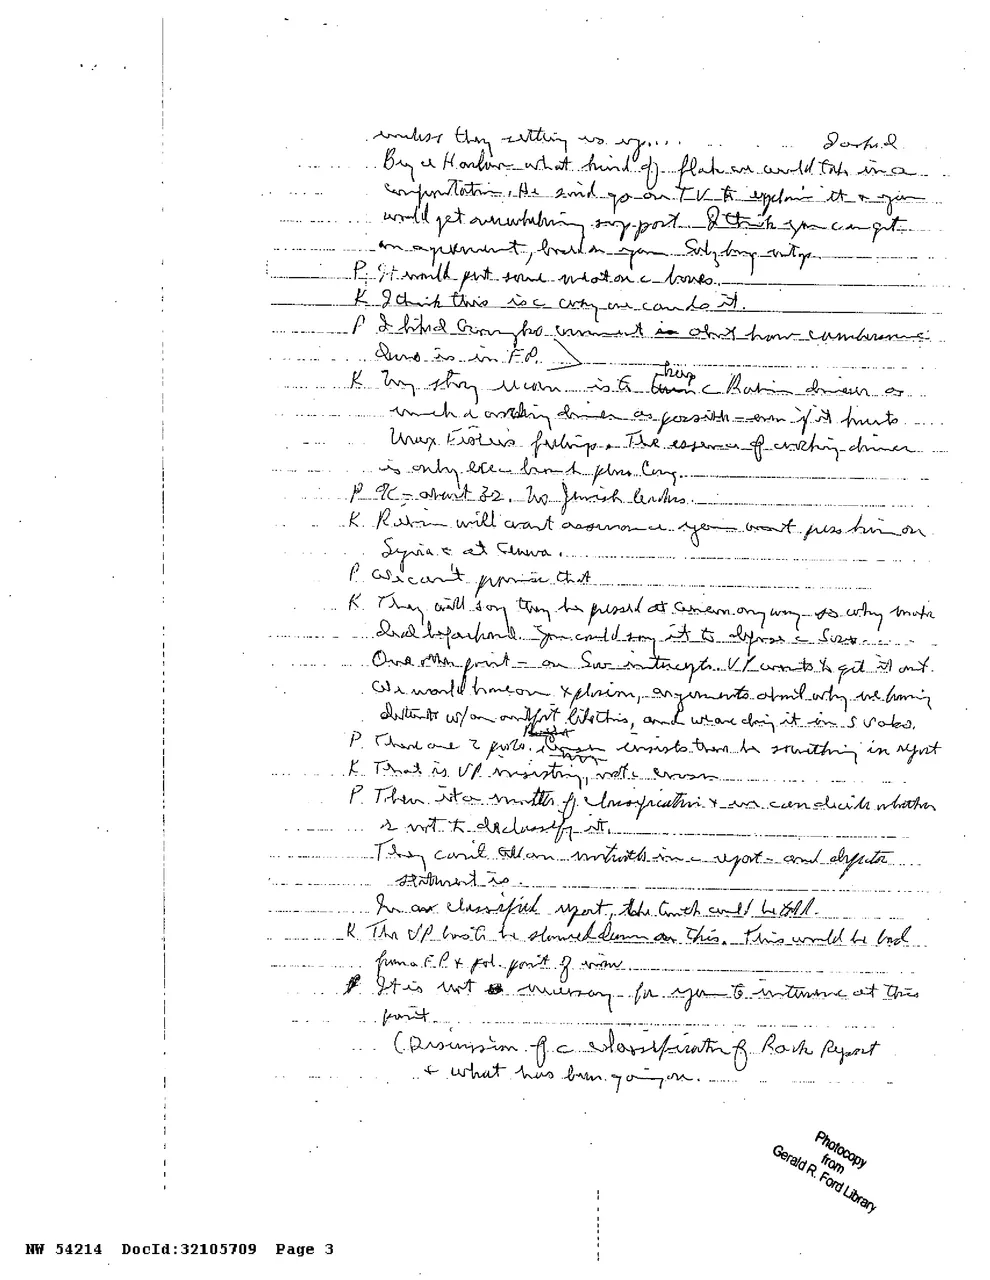 unless they setting us up.... I asked
Bryce Harlow what kind of flak we could take in a
confrontation. He said go on TV to explain it & you
would get overwhelming support. I think you can get
an agreement, based on your Salzburg
P It would put some meat on c bones.
K I think this is c way we can do it.
P I liked comment about how cumbersome
Dems is in F.P.
K My strong recom is to keep c Rabin dinner as
much a working dinner as possible – even if it hurts
Max Fisher's feelings. The essence of working dinner
is only exec branch plus Cong.
P OK – about 32. No Jewish leaders.
K Rabin will want assurance you won't press him on
Syria & at Geneva.
P We can't promise that
K They will say they be pressed at Geneva anyway so why make
deal beforehand. You could say it to defuse c
One other point – on Sov intercepts. VP wants to get it out.
We would have an explosion, arguments about why we having
detente w/an outfit like this, and we are doing it in 5
P There are 2 parts. insists there be something in report
K That is VP insisting, not c
P Then it c matter of classification & we can decide whether
or not to declassify it.
They can't tell an untruth in c report – and
statement is.
In a classified report, the truth could be told.
K The VP has to be slowed down on this. This would be bad
from a F.P. & pol. point of view
P It is not necessary for you to intervene at this
point.
(Discussion of c classification of Rock Report
& what has been going on.
Photocopy
from
Gerald R. Ford Library
NW 54214 DocId:32105709 Page 3